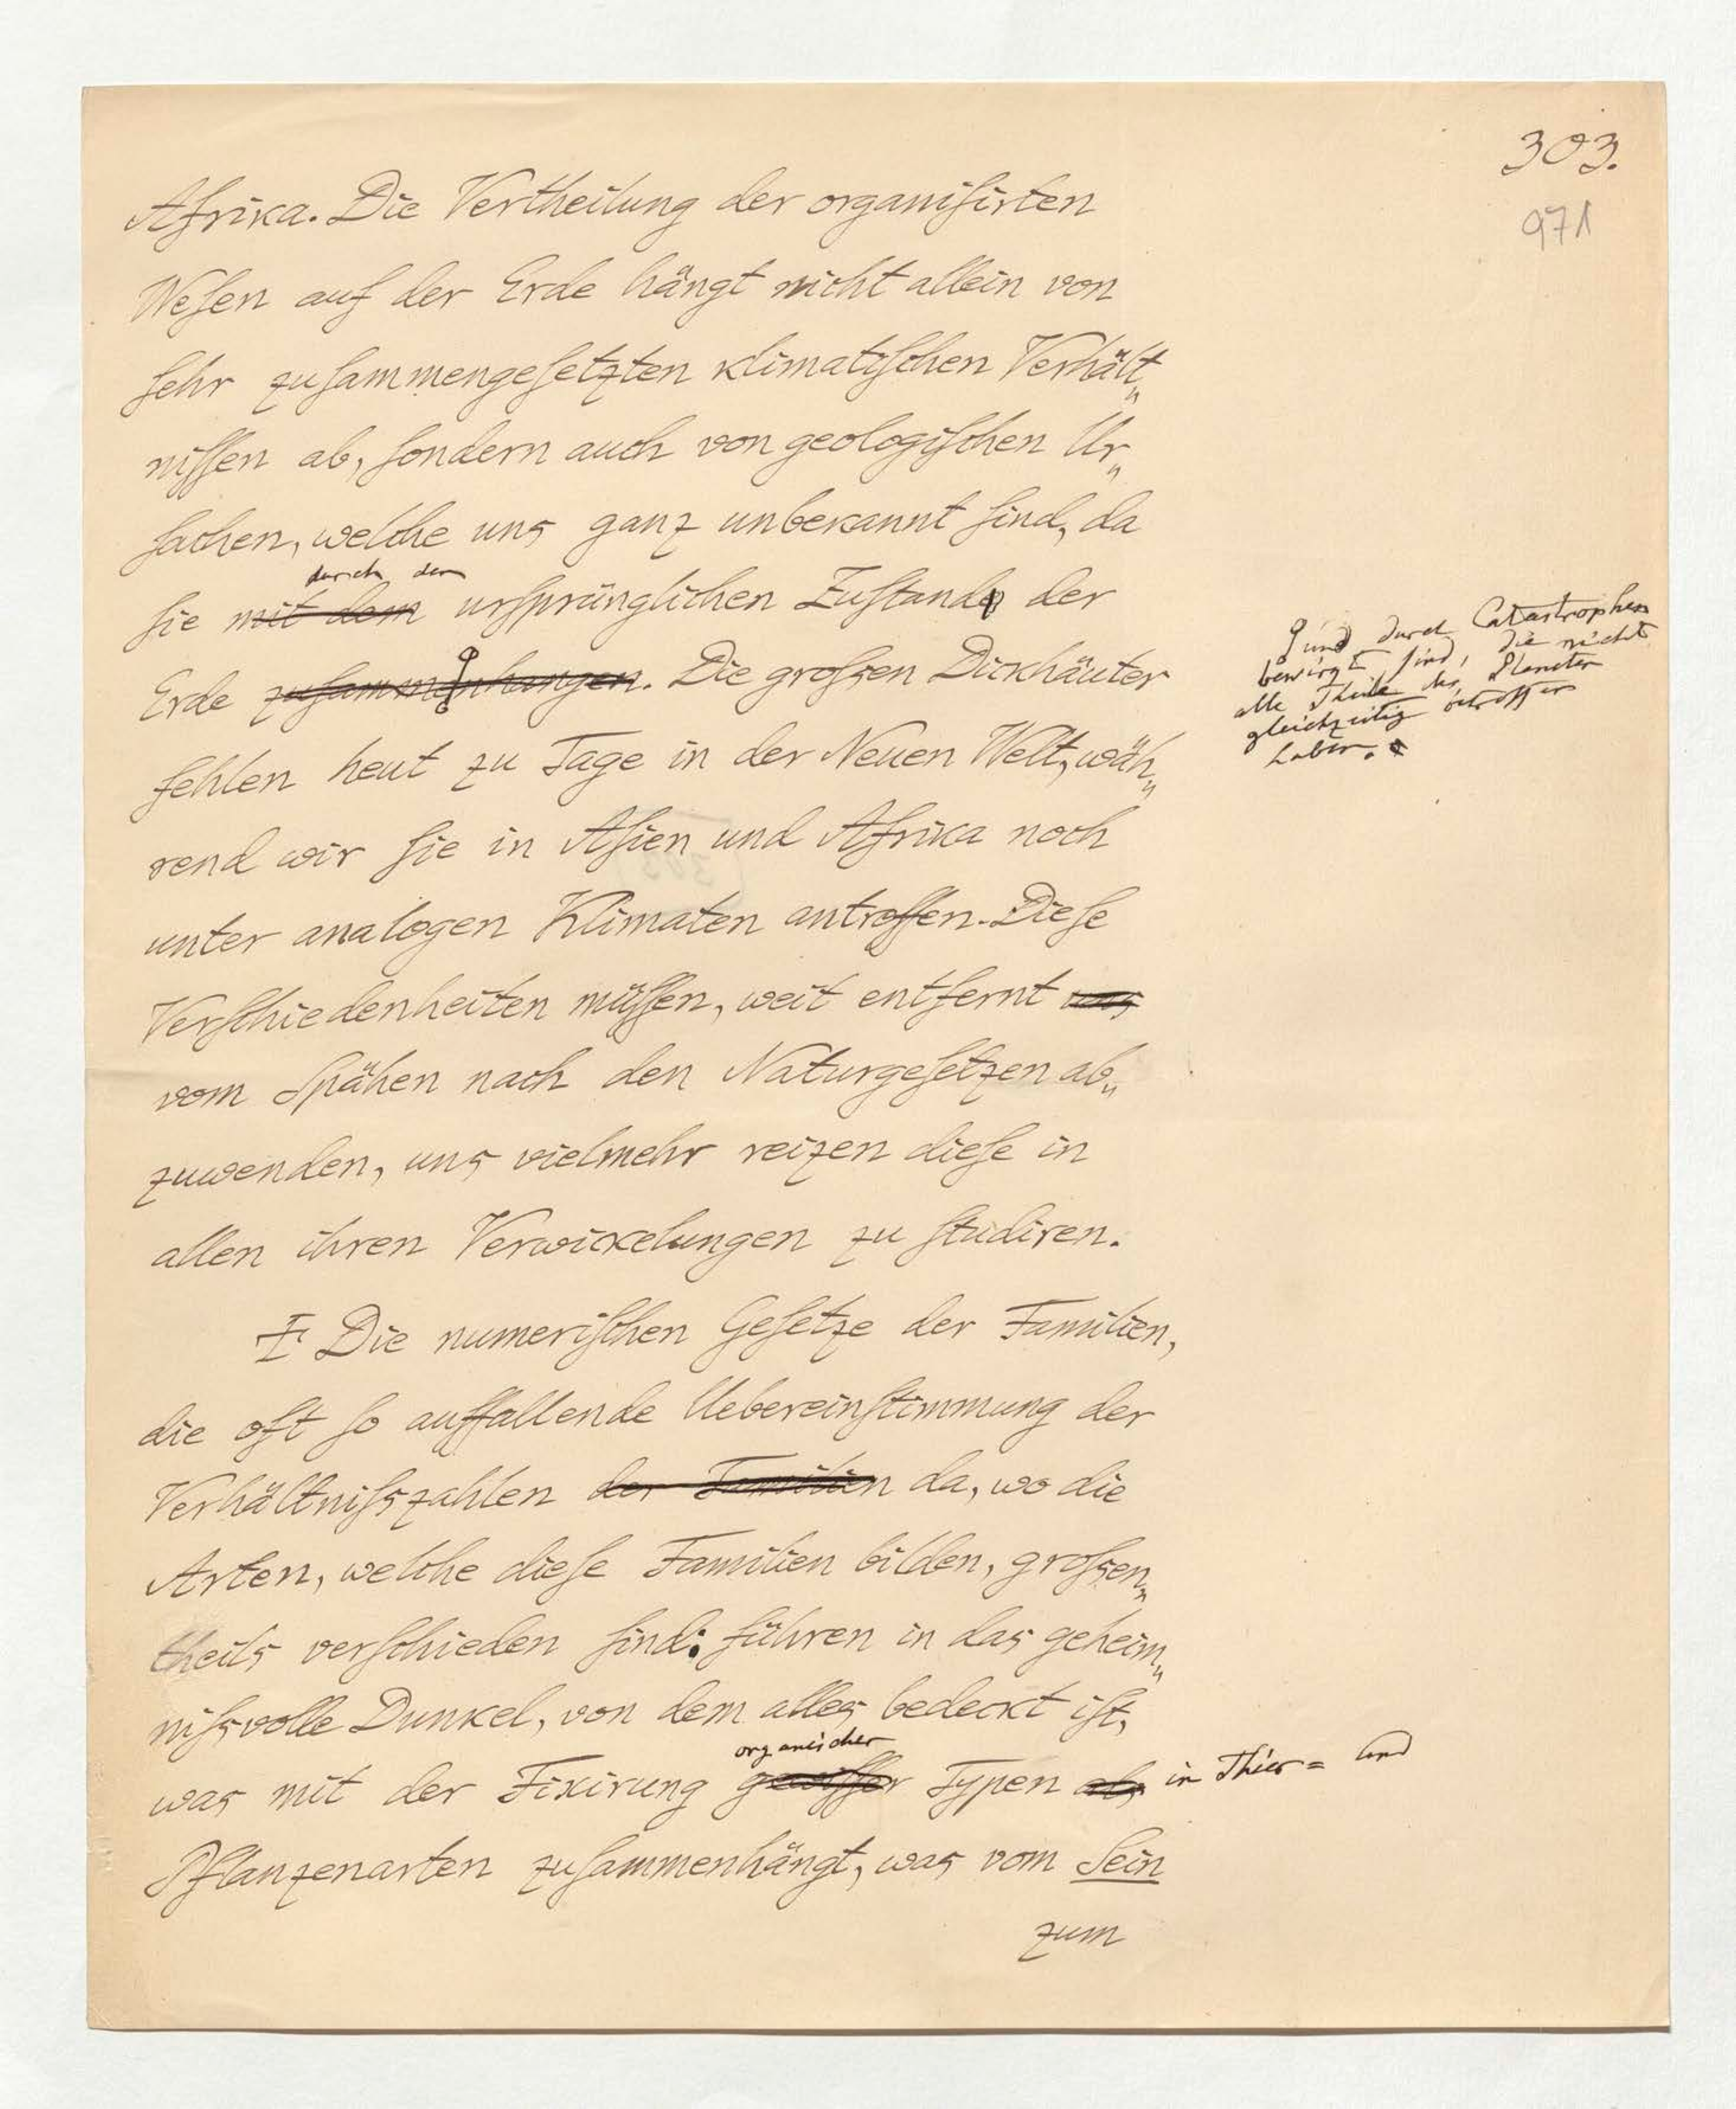 303.
971
Afrika. Die Vertheilung der organiſirten
Weſen auf der Erde hängt nicht allein von
ſehr zuſammengeſetzten klimatiſchen Verhält„
niſſen ab, ſondern auch von geologiſchen Ur„
ſachen, welche uns ganz unbekannt ſind, da
durch den
ſie mit dem urſprünglichen Zuſtande der
Erde zuſammenhangen. Die groſsen Dickhäuter
und durch Catastrophen
bewirkt ſind, die nicht
alle Theile des Planeten
gleichzeitig betroffen
haben.
fehlen heut zu Tage in der Neuen Welt, wäh„
rend wir ſie in Aſien und Afrika noch
unter analogen Klimaten antreffen. Dieſe
Verſchiedenheiten müſſen, weit entfernt uns
vom Spähen nach den Naturgeſetzen ab„
zuwenden, uns vielmehr reizen dieſe in
allen ihren Verwickelungen zu ſtudiren.
Die numeriſchen Geſetze der Familien,
die oft ſo auffallende Uebereinſtimmung der
Verhältniſszahlen der Familien da, wo die
Arten, welche dieſe Familien bilden, groſsen„
theils verſchieden ſind: führen in das geheim„
niſsvolle Dunkel, von dem alles bedeckt iſt,
organischer
was mit der Fixirung gewiſſer Typen als in Thier= und
Pflanzenarten zuſammenhängt, was vom Sein
zum